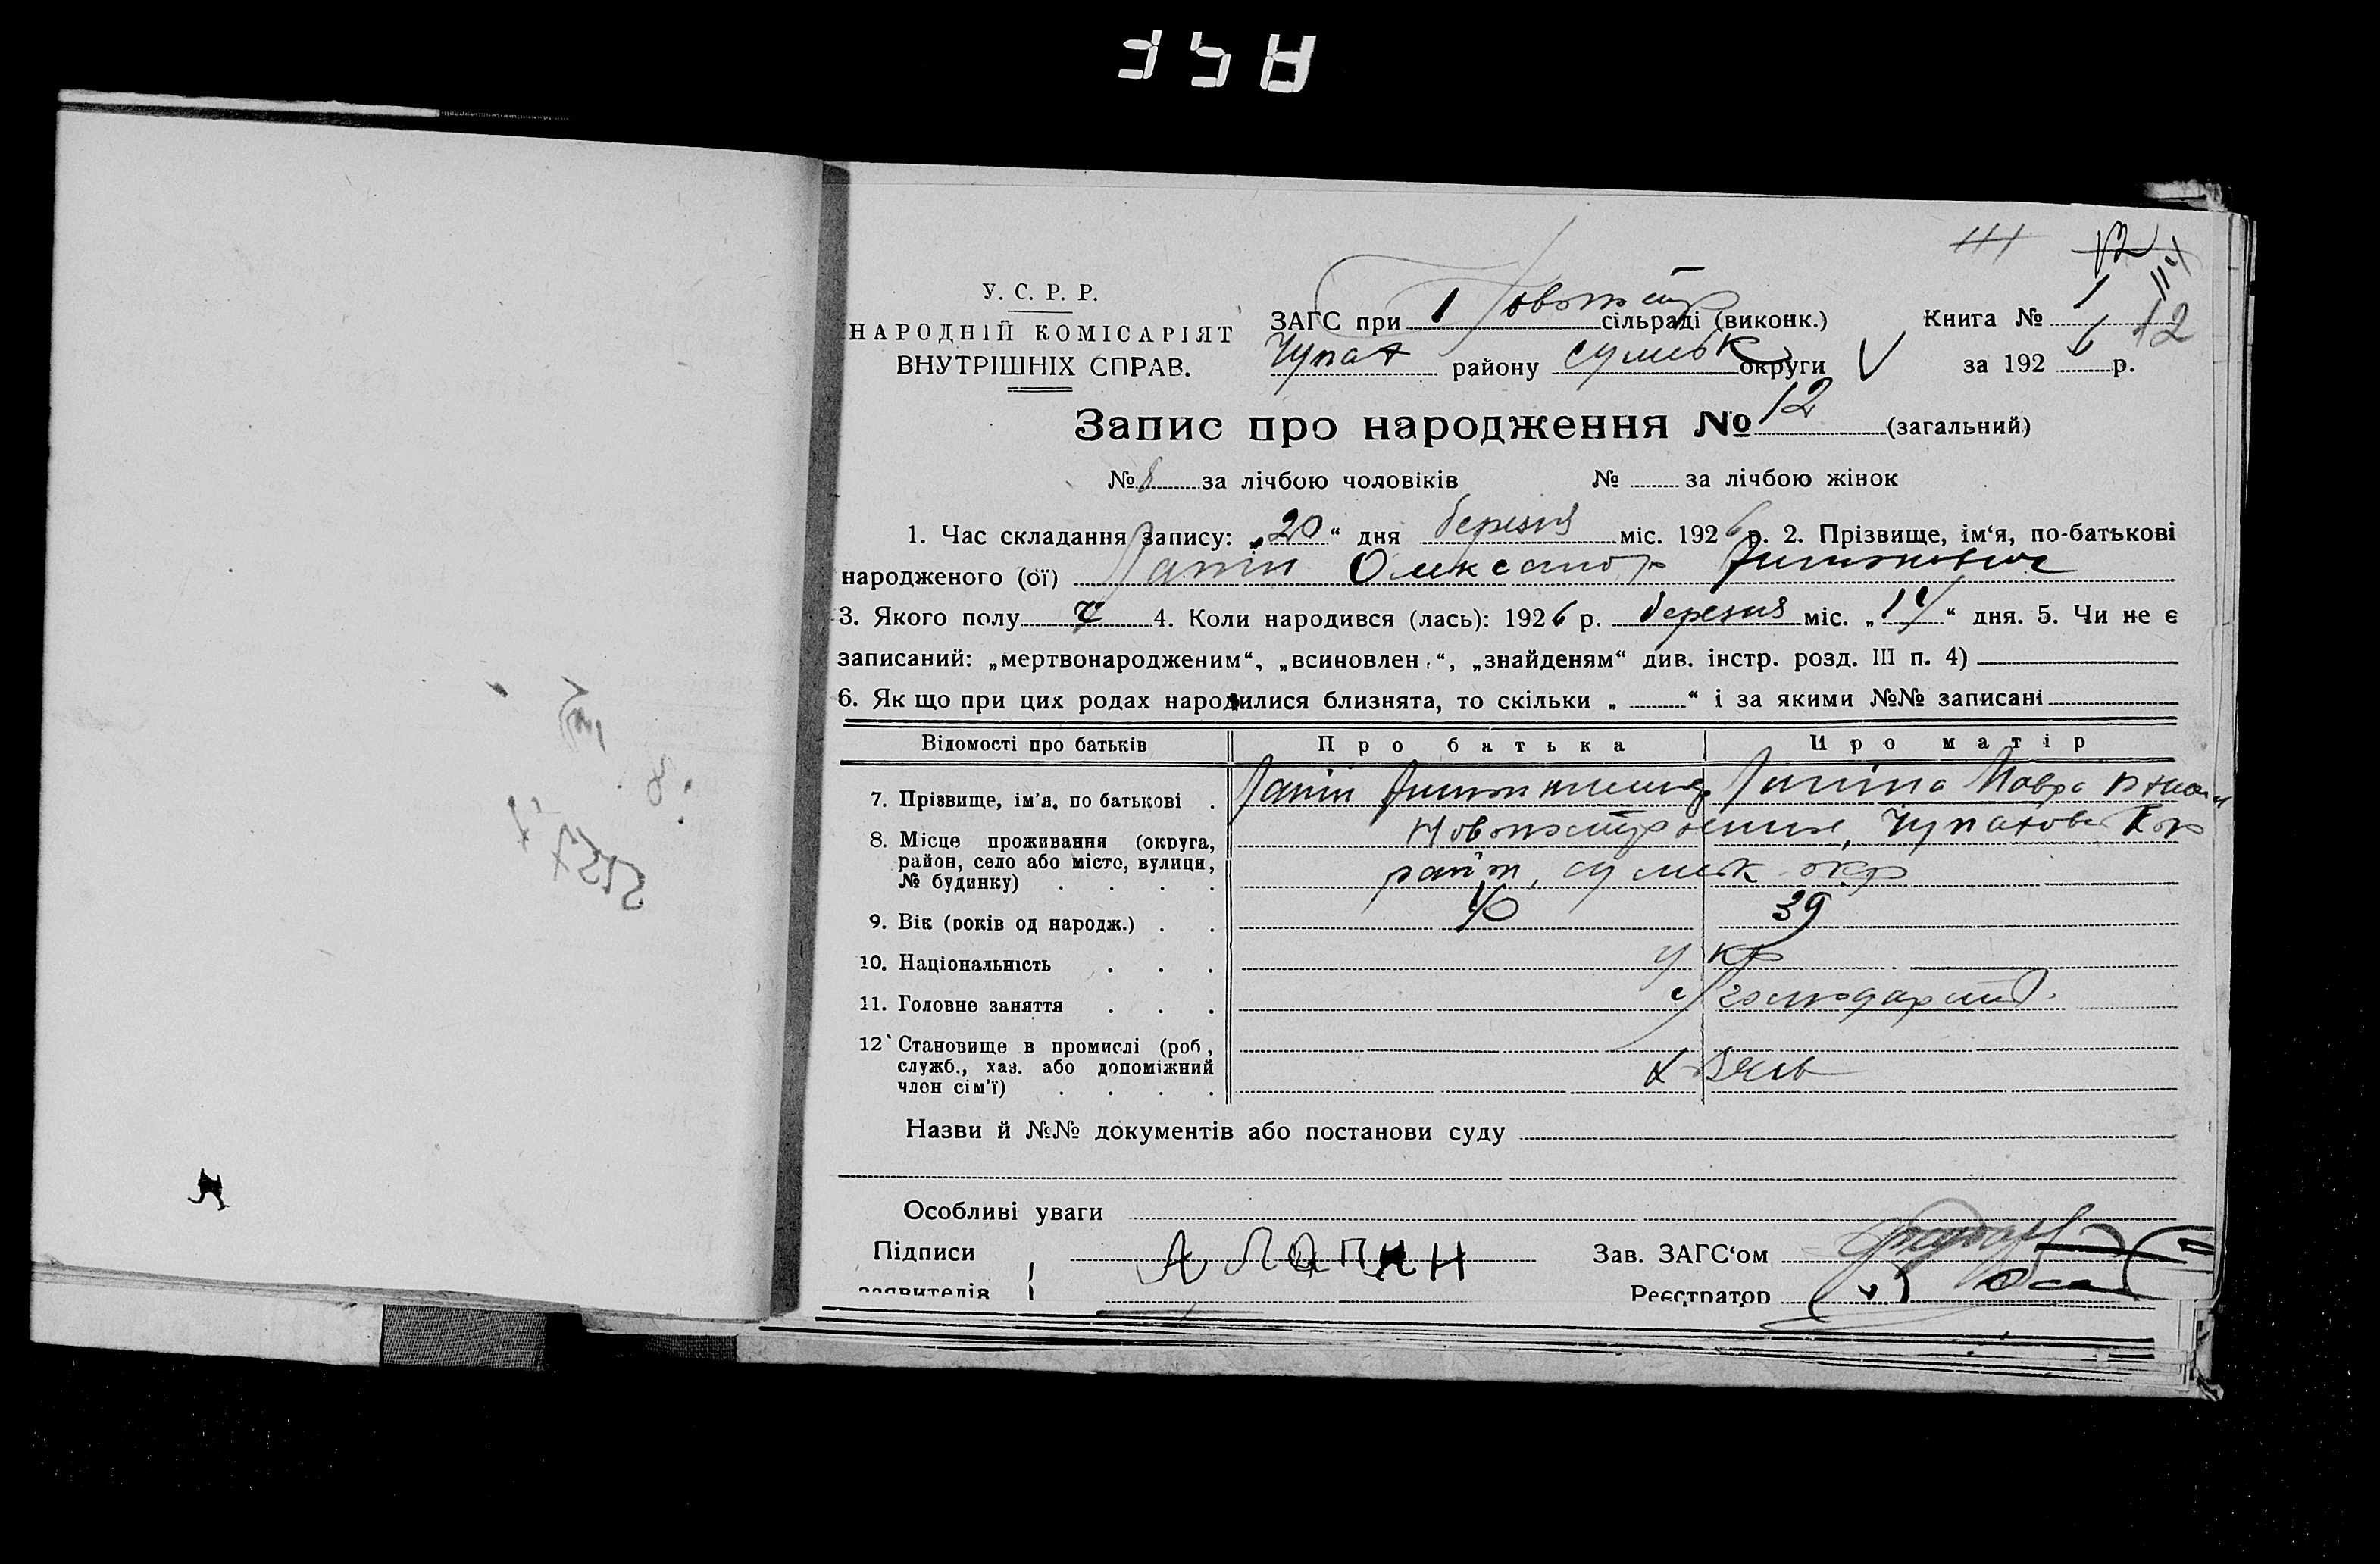 358
111 12
114
У. С. Р. Р.
НАРОДНІЙ КОМІСАРІЯТ
ВНУТРІШНІХ СПРАВ.
ЗАГС при 1 Новопостр сільраді (виконк.) Книга № 1 12
Чупах району Сумськ округи V за 1926 р.
Запис про народження № 12 (загальний)
№ 8 за лічбою чоловіків № за лічбою жінок
1. Час складання запису: „20“ дня березня міс. 1926 р. 2. Прізвище, ім‘я, по-батькові
народженого (ої) Лапін Олександр
3. Якого полу ч 4. Коли народився (лась): 1926 р. березня міс. „14“ дня. 5. Чи не є
записаний: „мертвонародженим“, „всиновлен.“, „знайденям“ див. інстр. розд. III п. 4)
6. Як що при цих родах народилися близнята, то скільки „ “ і за якими №№ записані
Відомості про батьків Про батька Про матір
7. Прізвище, ім'я, по батькові . Лапін Лапіна Мавра
8. Місце проживання (округа, Чупахов
район, село або місто, вулиця, район, Сумськ окр
№ будинку) . . . .
9. Вік (років од народж.) . . 40 39
10. Національність . . . укр
11. Головне заняття . . . с/господарств.
12 Становище в промислі (роб,
служб., хаз. або допоміжний
член сім'ї) . . . .
Назви й №№ документів або постанови суду
Особливі уваги
Підписи А ЛАПИН Зав. ЗАГС‘ом
заявителів Реєстратор